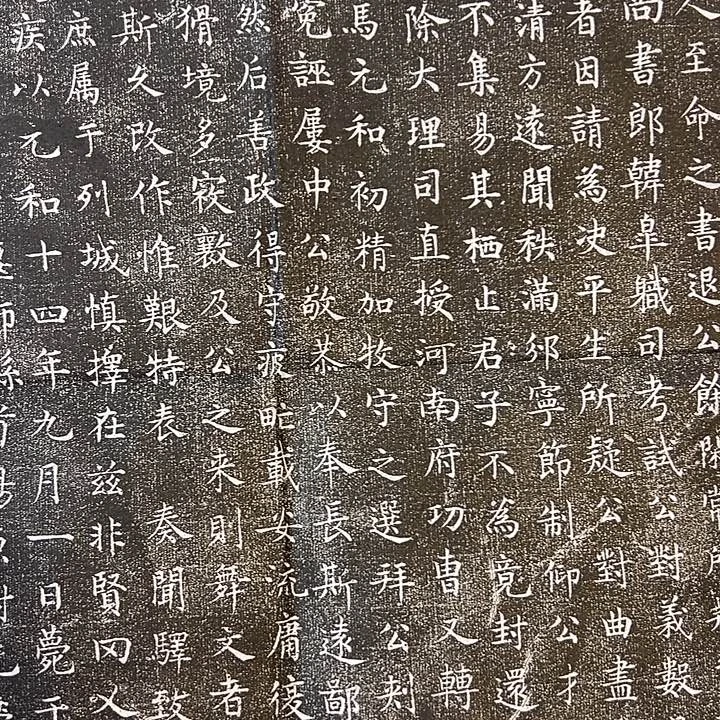 人至命之書退公餘隙常
尚書郎韓皐職司考試公對義數
者因請為決平生所疑公對曲盡
清方遠聞秩滿邠寧節制仰公才
不集易其栖止君子不為竟封還
除大理司直授河南府功曹又轉
馬元和初精加牧守之選拜公刾
冤誣屢中公敬恭以奉長斯遠鄙
然后善政得守疲甿載安流庸復
猾境多寇数及公之来則舞文者
斯久改作惟艱特表奏聞驛致
庶属于列城慎擇在兹非賢罔乂
疾以元和十四年九月一日薨于
師縣首陽原祔先